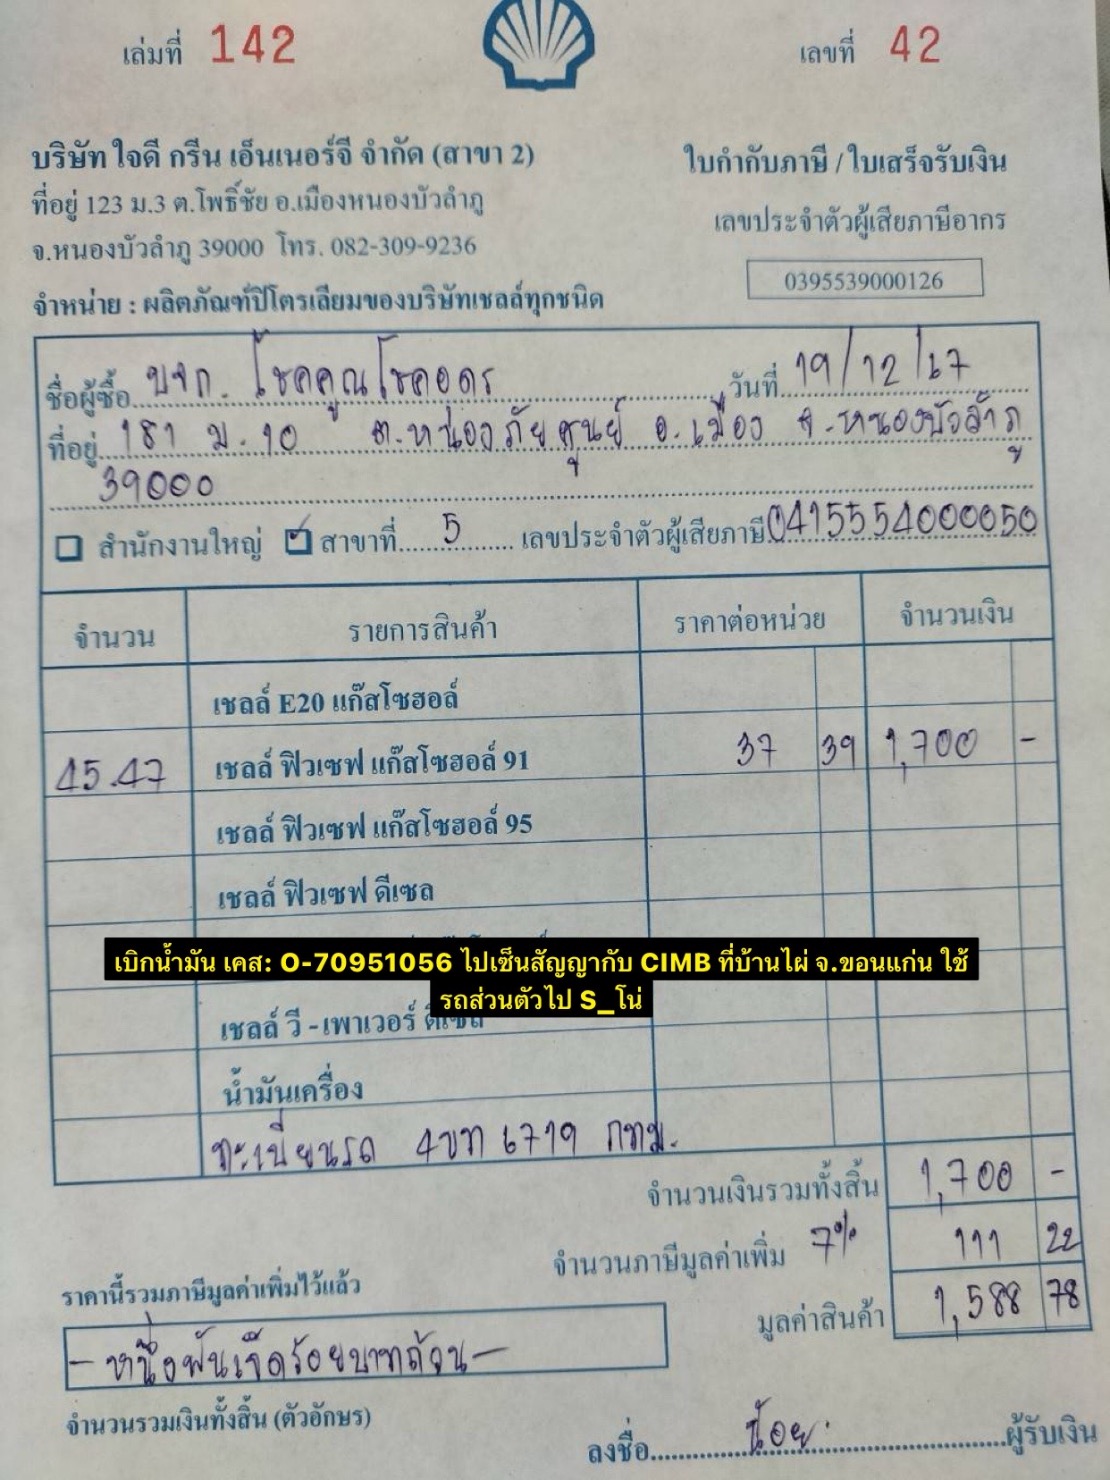 เล่มที่ 142
เลขที่ 42
บริษัท ใจดี กรีน เอ็นเนอร์จี จำกัด (สาขา 2)
ใบกำกับภาษี / ใบเสร็จรับเงิน
ที่อยู่ 123 ม.3 ต.โพธิ์ชัย อ.เมืองหนองบัวลำภู
เลขประจำตัวผู้เสียภาษีอากร
จ.หนองบัวลำภู 39000 โทร. 082-309-9236
0395539000126
จำหน่าย : ผลิตภัณฑ์ปิโตรเลียมของบริษัทเชลล์ทุกชนิด
ชื่อผู้ซื้อ บจก. โชคคูณโชคอดร วันที่ 19/12/67
ที่อยู่ 181 ม.10 ต.หนองภัยศูนย์ อ.เมือง จ.หนองบัวลำภู
39000
สำนักงานใหญ่ ✓ สาขาที่ 5 เลขประจำตัวผู้เสียภาษี 0415554000050
จำนวน รายการสินค้า ราคาต่อหน่วย จำนวนเงิน
เชลล์ E20 แก๊สโซฮอล์
45.47 เชลล์ ฟิวเซฟ แก๊สโซฮอล์ 91 37 39 1,700 -
เชลล์ ฟิวเซฟ แก๊สโซฮอล์ 95
เชลล์ ฟิวเซฟ ดีเซล
เบิกน้ำมัน เคส: O-70951056 ไปเซ็นสัญญากับ CIMB ที่บ้านไผ่ จ.ขอนแก่น ใช้
รถส่วนตัวไป S_โน่
เชลล์ วี - เพาเวอร์ ดีเซล
น้ำมันเครื่อง
ทะเบียนรถ 4ขท 6719 กทม.
จำนวนเงินรวมทั้งสิ้น 1,700 -
จำนวนภาษีมูลค่าเพิ่ม 7% 111 22
ราคานี้รวมภาษีมูลค่าเพิ่มไว้แล้ว
มูลค่าสินค้า 1,588 78
- หนึ่งพันเจ็ดร้อยบาทถ้วน -
จำนวนรวมเงินทั้งสิ้น (ตัวอักษร)
ลงชื่อ น้อย ผู้รับเงิน